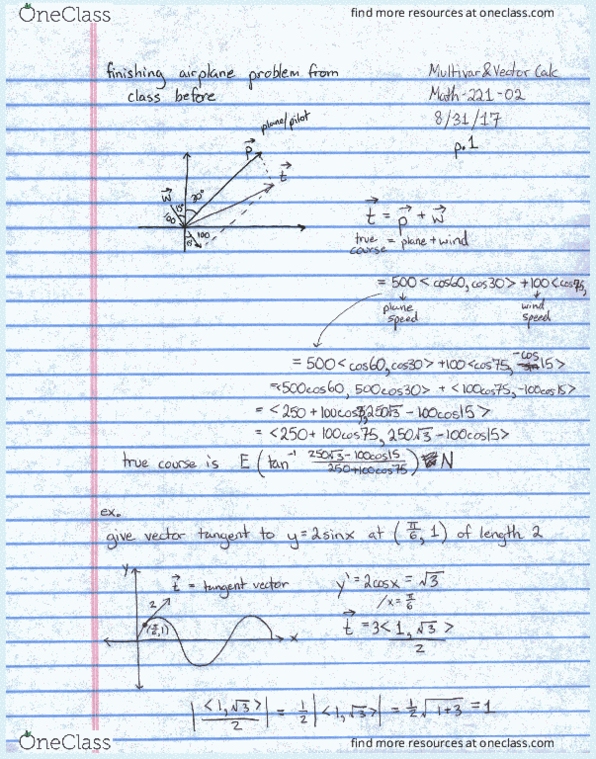 OneClass find more resources at oneclass.com
finishing airplane problem from
class before
Multivar & Vector Calc
Math-221-02
8/31/17
p.1
plane/pilot
p
t
w
30°
15°
100
100
15
t = p + w
true course = plane + wind
= 500 < cos60, cos30 > + 100 < cos75,
plane speed wind speed
= 500 < cos60, cos30 > + 100 < cos75, -cos15 >
= <500cos60, 500cos30 > + < 100cos75, -100cos15 >
= < 250 + 100cos75, 250√3 - 100cos15 >
= < 250 + 100cos75, 250√3 - 100cos15 >
true course is E (tan⁻¹ (250√3 - 100cos15)/(250 + 100cos75)) N
ex.
give vector tangent to y = 2sinx at (π/6, 1) of length 2
y
t = tangent vector
y' = 2cosx = √3
/x = π/6
2
(π/6, 1)
x
t = 3< 1, √3 >/2
|< 1, √3 >/2| = 1/2 |< 1, √3 >| = 1/2 √(1+3) = 1
OneClass find more resources at oneclass.com